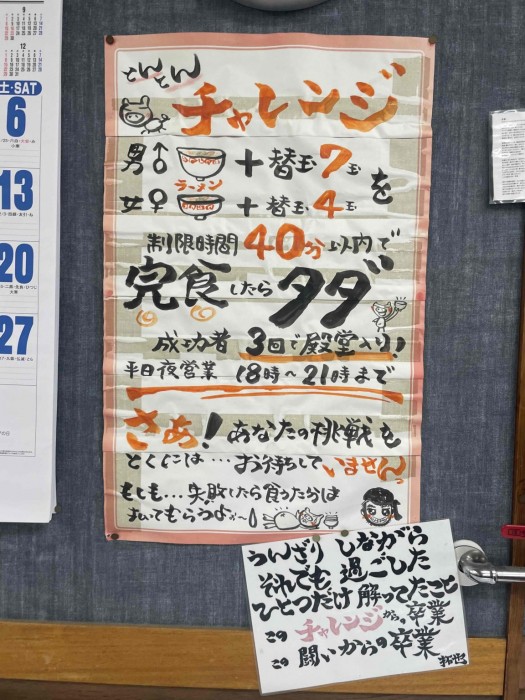 9
12
土・SAT
6
13
20
27
とんとん
チャレンジ
男♂ ラーメン +替玉7玉を
女♀ +替玉4玉
制限時間40分以内で
完食したらタダ
成功者 3回で殿堂入り!
平日夜営業 18時〜21時まで
さあ!あなたの挑戦も
とくには…お待ちして いませんっ
もしも…失敗したら食うた分は
うんざり しながら
それでも 過ごした
ひとつだけ 解ってたこと
この チャレンジから。卒業
この 闘いからの卒業